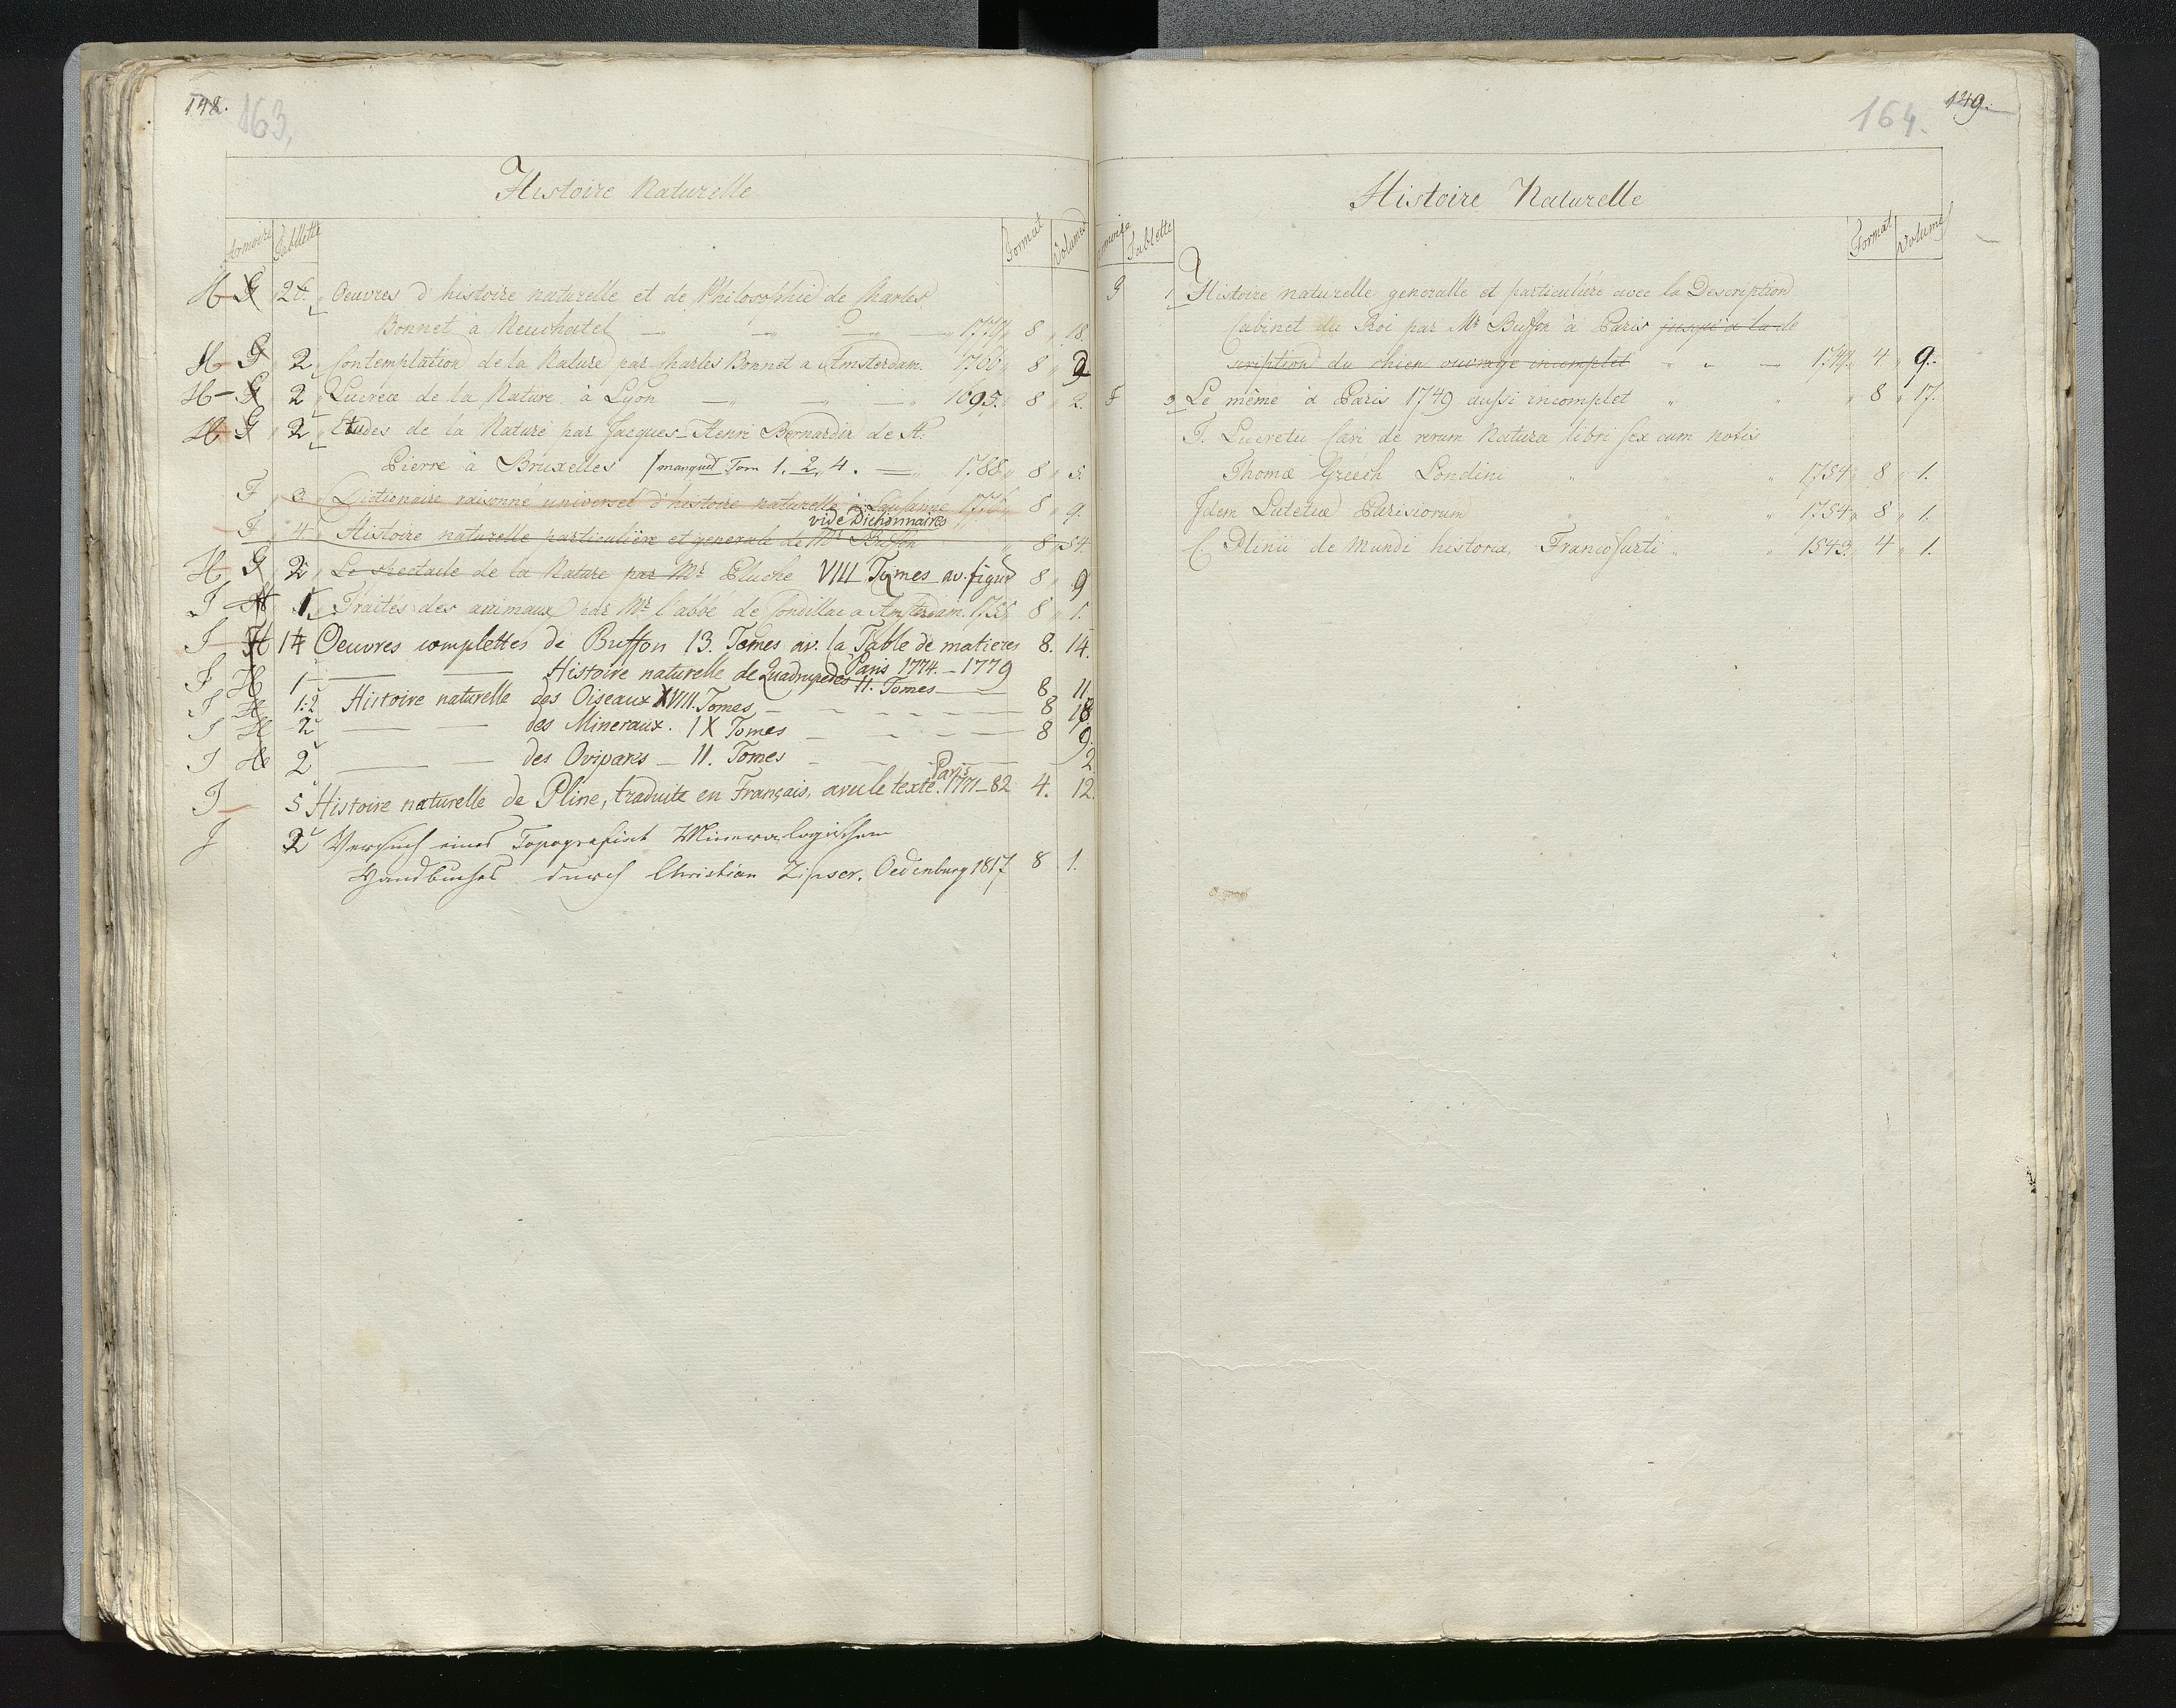 148. 163.
Histoire Naturelle
Armoire Tablette Format Volumes
H G 2 Oeuvres d'histoire naturelle et de Philosophie de Charles
Bonnet à Neuchatel 1779 8 18.
H G 2 Contemplation de la Nature par Charles Bonnet a Amsterdam. 8 2
H - G 2 Lucréce de la Nature à Lyon 1695. 8 2.
H G 2 Etudes de la Nature par Jacques-Henri Bernardin de St.
Pierre à Bruxelles / manquet Tom 1. 2, 4. 1788 8 5.
F 3. Dictionaire raisonné universel d'histoire naturelle à Lausanne 1776 8 9.
vide Dictionnaires
F 4. Histoire naturelle particulière et generale de Mr Buffon 8 54.
H G 2 Le spectacle de la Nature par Mr Pluche VIII Tomes av. figur 8 9
I H 1 Traités des animaux par Mr l'abbé de Condillac a Amsterdam. 1755 8 1.
I H 1 Oeuvres complettes de Buffon 13. Tomes av. la Table de matieres 8. 14.
Paris 1774.-1779
I H 1 Histoire naturelle de Quadrupedes 11. Tomes 8 11.
I H 1:2 Histoire naturelle des Oiseaux XVIII. Tomes 8 18.
I H 2 des Mineraux. IX Tomes 8 9.
I H 2 des Ovipares - 11. Tomes 2.
I 5 Histoire naturelle de Pline, traduite en Français, avec le texte. Paris 1771-82 4. 12.
J 2 Versuch eines Topografisch Mineralogischen
Handbuches durch Christian Zipser. Oedenburg 1817 8 1.
164. 149.
Histoire Naturelle
Armoire Tablette Format Volumes
G 1 Histoire naturelle generalle et particuliére avec la Description
Cabinet du Roi par Mr Buffon à Paris jusqu'à la de
scription du chien ouvrage incomplet 1749. 4 9.
F 3 Le même à Paris 1749 aussi incomplet 8 17.
T. Lucretii Cari de rerum Natura libri sex cum notis
Thomæ Creech Londini 1754 8 1.
Idem Lutetiæ Parisiorum 1754 8 1.
C. Plinii de Mundi historia, Francofurti 1543. 4 1.